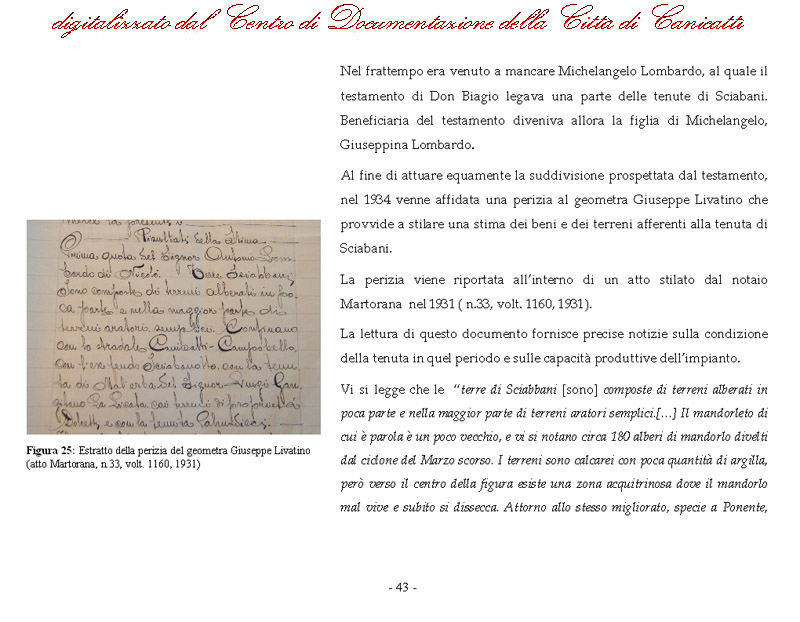 digitalizzato dal Centro di Documentazione della Città di Canicattì
Nel frattempo era venuto a mancare Michelangelo Lombardo, al quale il
testamento di Don Biagio legava una parte delle tenute di Sciabani.
Beneficiaria del testamento diveniva allora la figlia di Michelangelo,
Giuseppina Lombardo.
Al fine di attuare equamente la suddivisione prospettata dal testamento,
nel 1934 venne affidata una perizia al geometra Giuseppe Livatino che
provvide a stilare una stima dei beni e dei terreni afferenti alla tenuta di
Sciabani.
La perizia viene riportata all'interno di un atto stilato dal notaio
Martorana nel 1931 ( n.33, volt. 1160, 1931).
La lettura di questo documento fornisce precise notizie sulla condizione
della tenuta in quel periodo e sulle capacità produttive dell'impianto.
Vi si legge che le "terre di Sciabbani [sono] composte di terreni alberati in
poca parte e nella maggior parte di terreni aratori semplici.[...] Il mandorleto di
cui è parola è un poco vecchio, e vi si notano circa 180 alberi di mandorlo divelti
dal ciclone del Marzo scorso. I terreni sono calcarei con poca quantità di argilla,
però verso il centro della figura esiste una zona acquitrinosa dove il mandorlo
mal vive e subito si dissecca. Attorno allo stesso migliorato, specie a Ponente,
Risultati della stima
Prima quota del Signor Antonio Lom
bardo di Nicolò. Terre Sciabbani
sono composte di terreni alberati in po
ca parte e nella maggior parte di
terreni aratori semplici. Confinano
con lo stradale Canicatti-Campobello,
con l'ex feudo Sciabanotta, con la tenu
ta di del Signor Luigi
e con la tenuta
Figura 25: Estratto della perizia del geometra Giuseppe Livatino
(atto Martorana, n.33, volt. 1160, 1931)
- 43 -